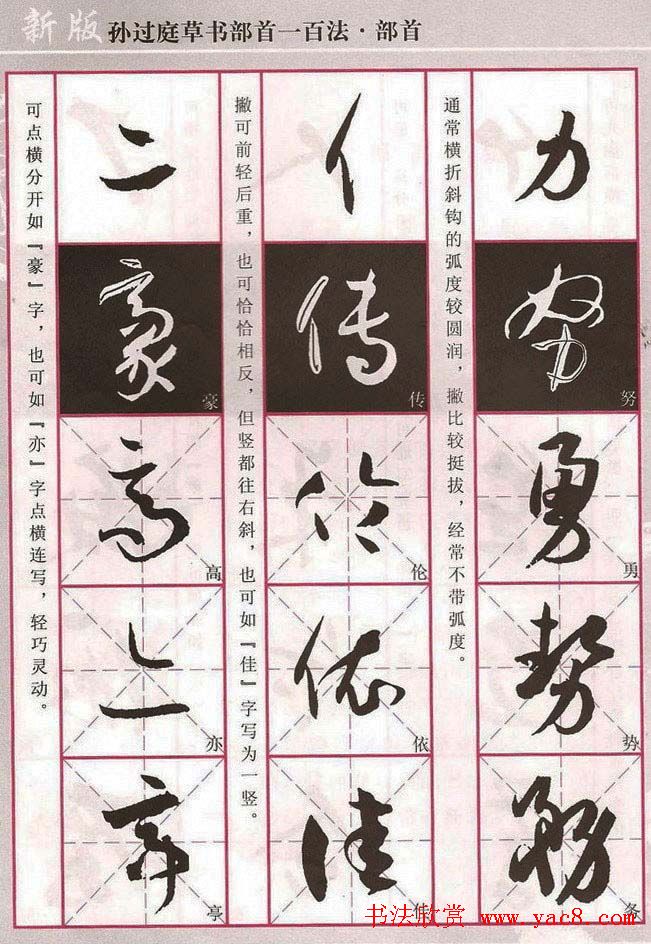 新版 孙过庭草书部首一百法·部首
通常横折斜钩的弧度较圆润，撇比较挺拔，经常不带弧度。
力
努
努
勇
勇
势
势
务
务
撇可前轻后重，也可恰恰相反，但竖都往右斜，也可如『佳』字写为一竖。
亻
传
传
伦
伦
依
依
佳
佳
可点横分开如『豪』字，也可如『亦』字点横连写，轻巧灵动。
亠
豪
豪
高
高
亦
亦
享
享
书法欣赏 www.yac8.com